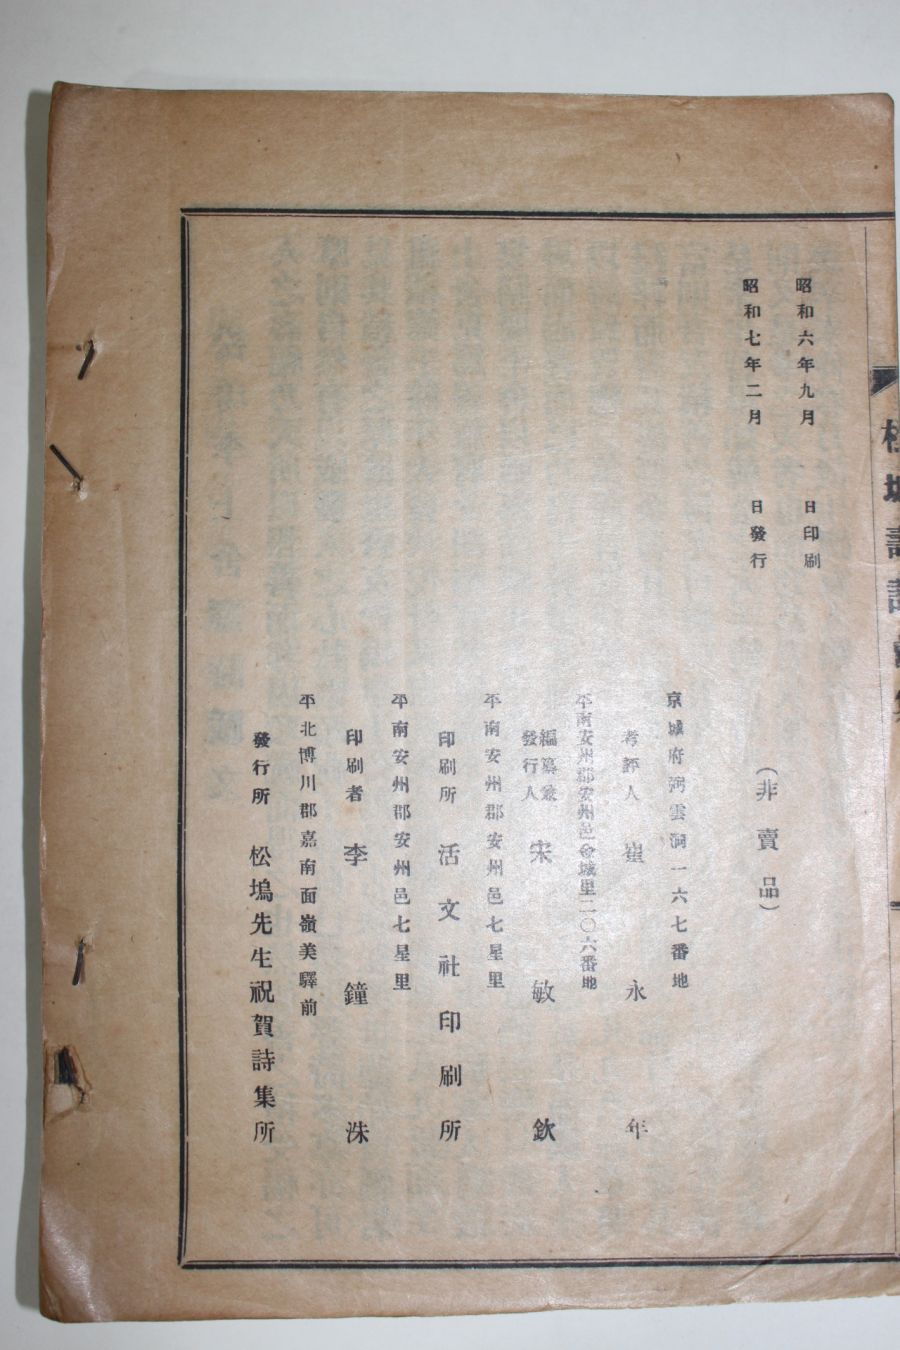 昭和六年九月　日印刷
昭和七年二月　日發行
（非賣品）
京城府 雲洞一六七番地
考評人　崔永年
平南安州郡安州邑金城里二〇六番地
編纂兼發行人　宋敏欽
平南安州郡安州邑七星里
印刷所　活文社印刷所
平南安州郡安州邑七星里
印刷者　李鐘洙
平北博川郡嘉南面嶺美驛前
發行所　松塢先生祝賀詩集所